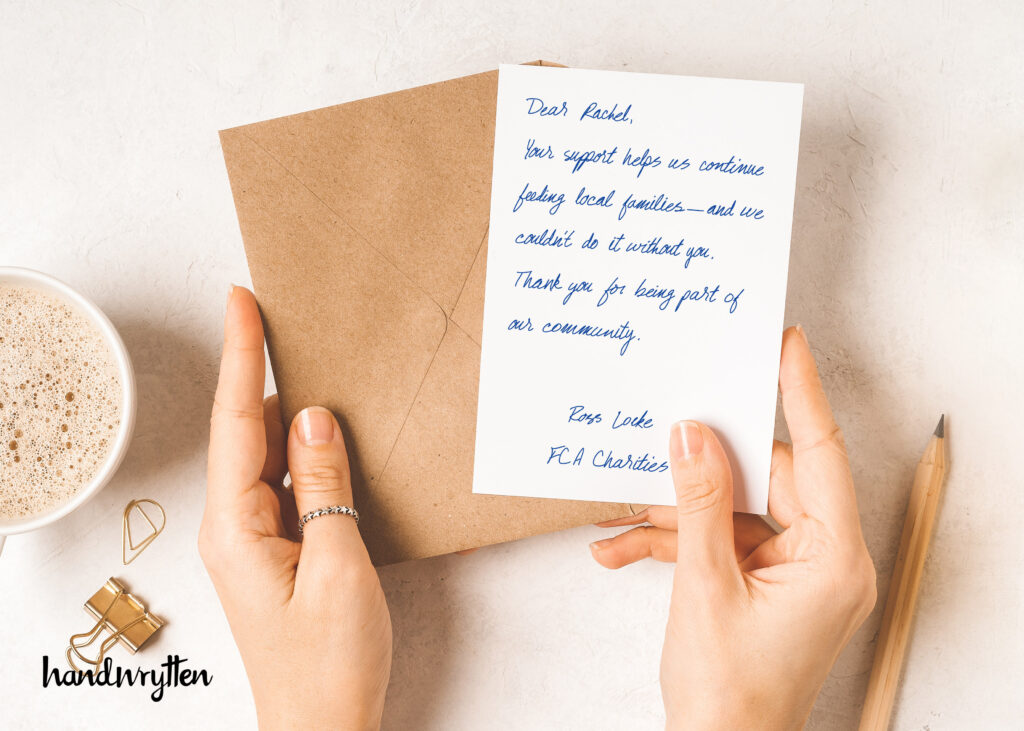 Dear Rachel,
Your support helps us continue
feeding local families—and we
couldn't do it without you.
Thank you for being part of
our community.
Ross Locke
FCA Charities
handwrytten